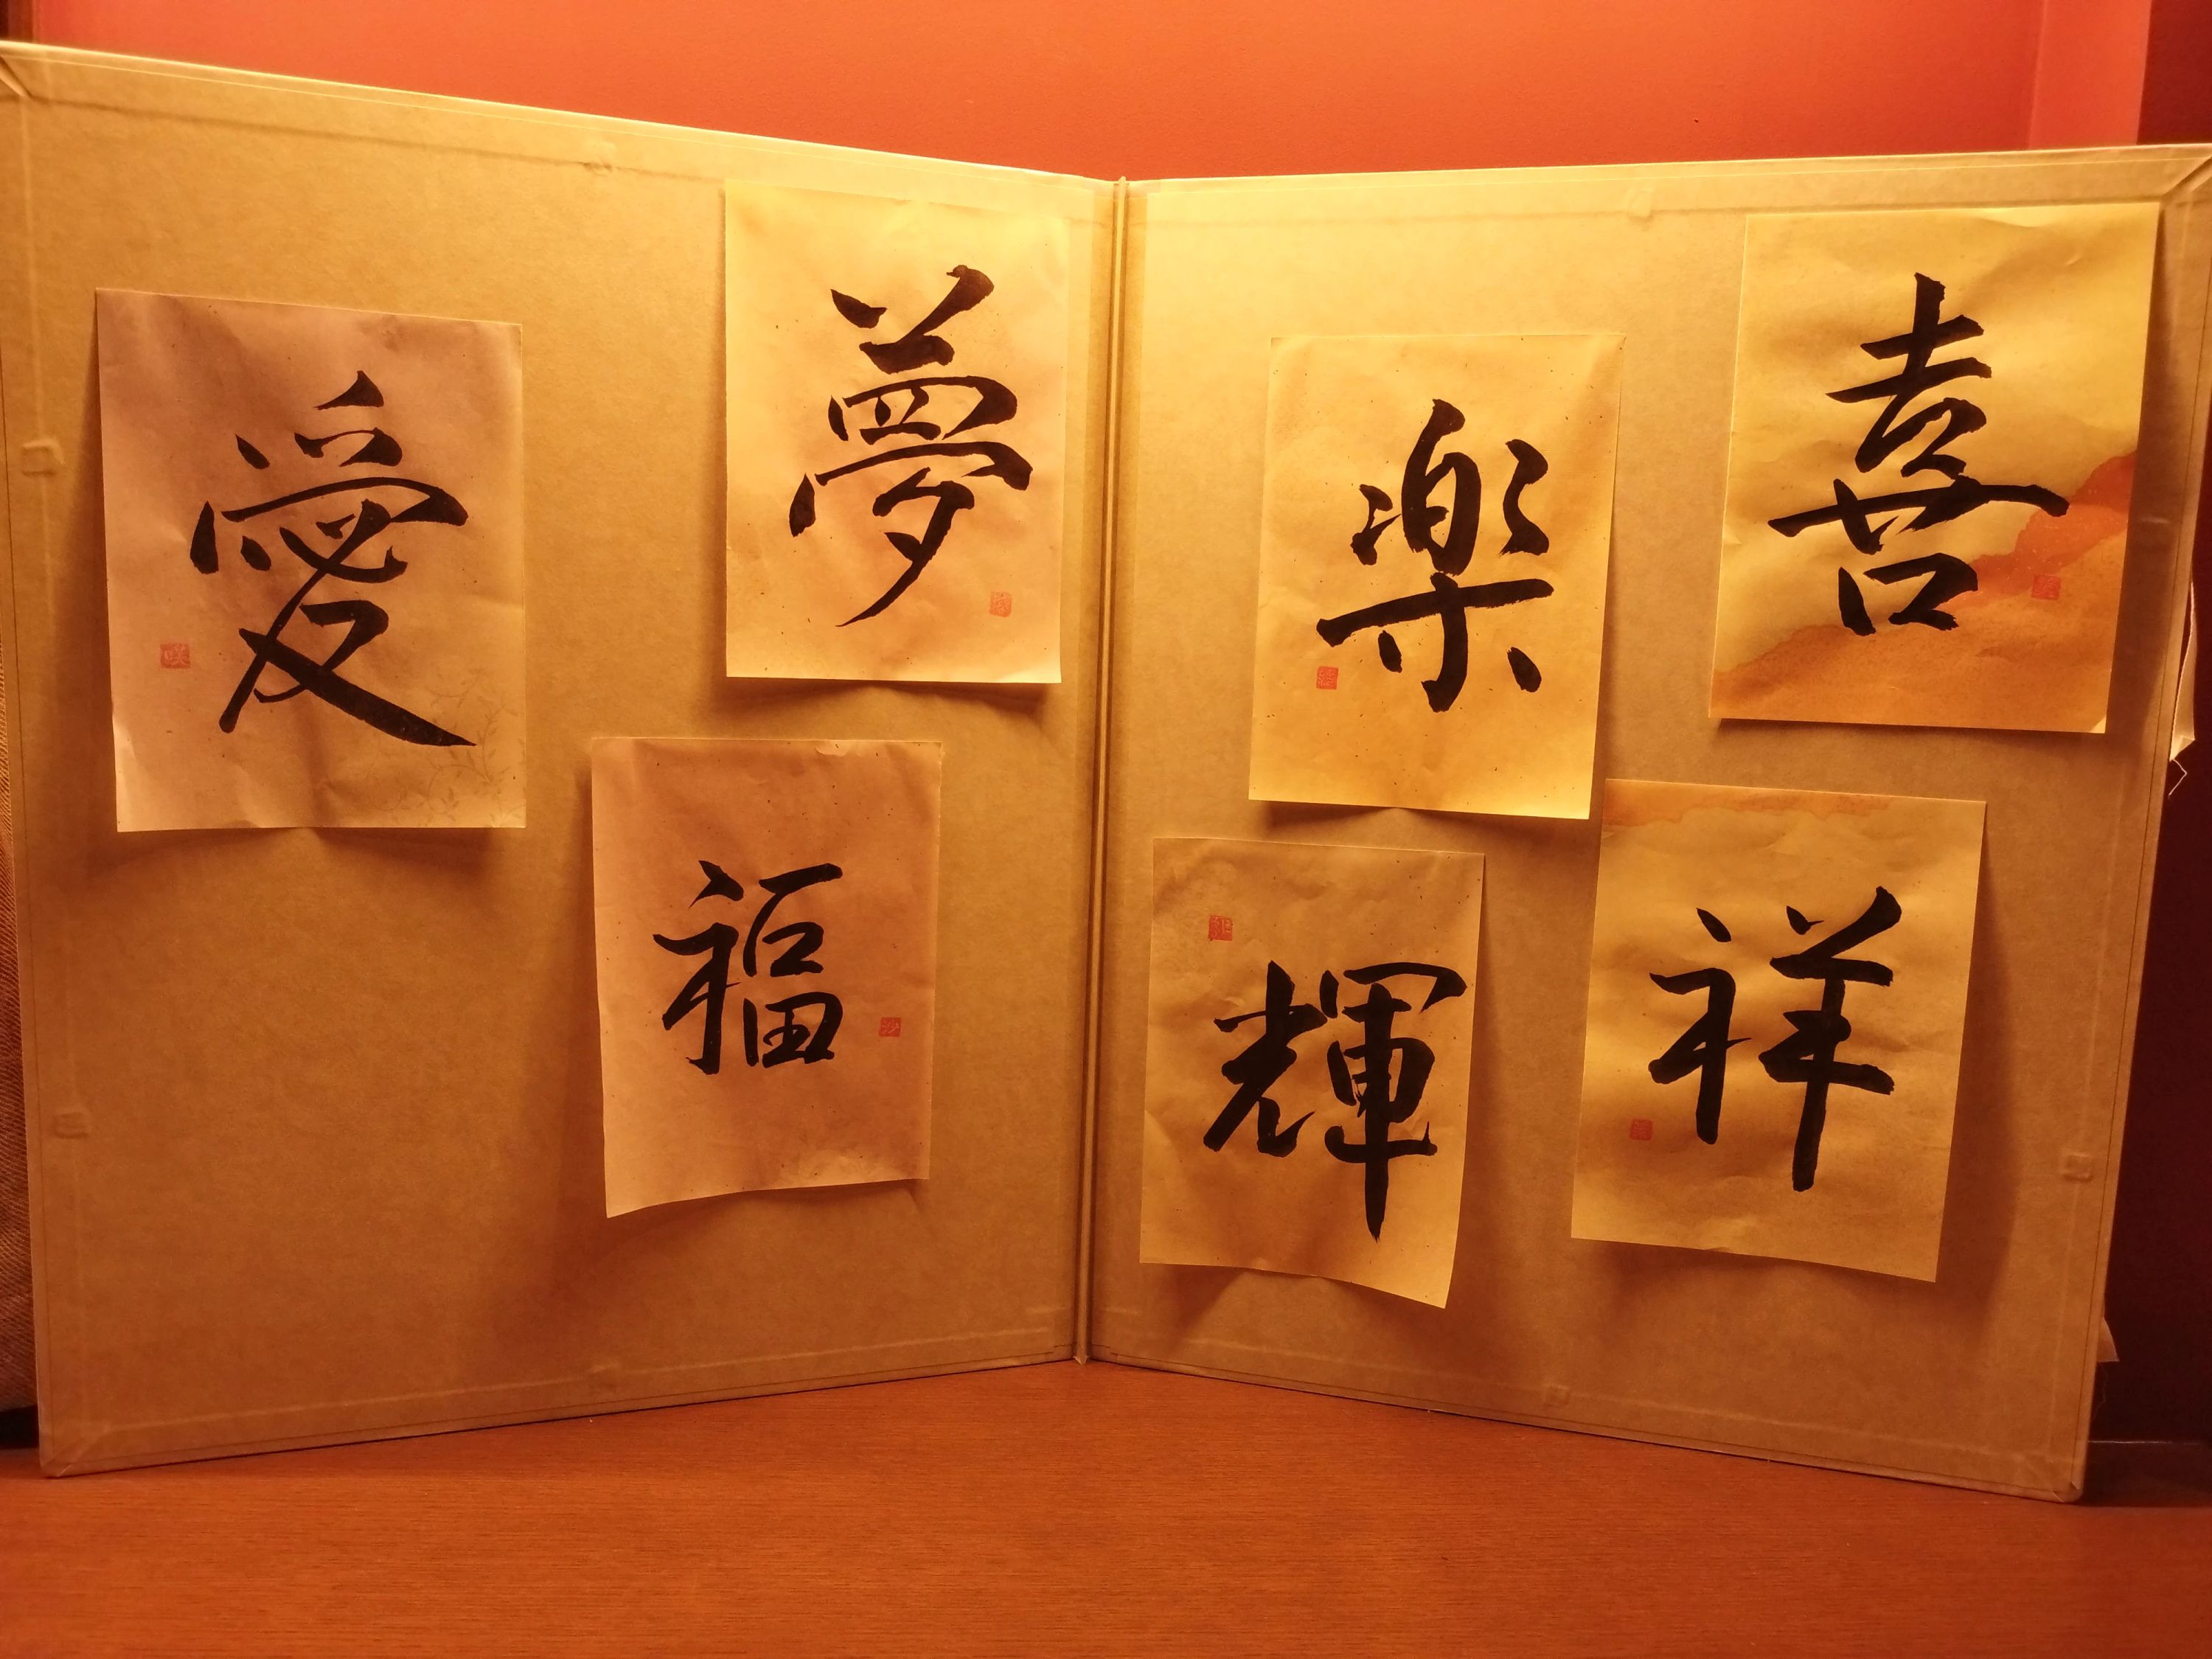 愛
夢
福
楽
喜
輝
祥